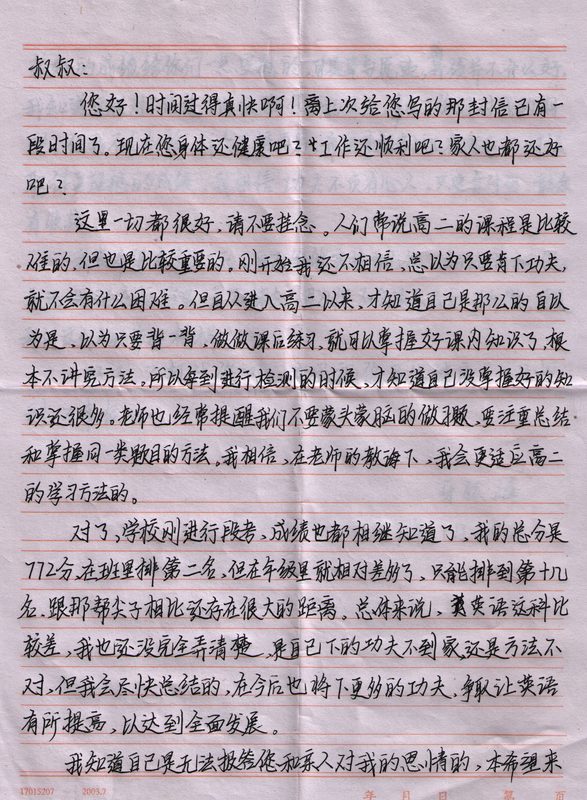 叔叔：
您好！时间过得真快啊！离上次给您写的那封信已有一
段时间了。现在您身体还健康吧？工作还顺利吧？家人也都还好
吧？
这里一切都很好，请不要挂念。人们常说高二的课程是比较
难的，但也是比较重要的。刚开始我还不相信，总以为只要肯下功夫，
就不会有什么困难。但自从进入高二以来，才知道自己是那么的自以
为是，以为只要背一背，做做课后练习，就可以掌握好课内知识了，根
本不讲究方法。所以每到进行检测的时候，才知道自己没掌握好的知
识还很多。老师也经常提醒我们不要蒙头蒙脑的做习题，要注重总结
和掌握同一类题目的方法。我相信，在老师的教诲下，我会更适应高二
的学习方法的。
对了，学校刚进行段考，成绩也都相继知道了，我的总分是
772分，在班里排第二名，但在年级里就相对差多了，只能排到第十几
名，跟那帮尖子相比还存在很大的距离。总体来说，英语这科比
较差，我也还没完全弄清楚，是自己下的功夫不到家，还是方法不
对，但我会尽快总结的，在今后也将下更多的功夫，争取让英语
有所提高，以达到全面发展。
我知道自己是无法报答您和亲人对我的恩情的，本希望来
17015207 2003.7 年 月 日 第 页